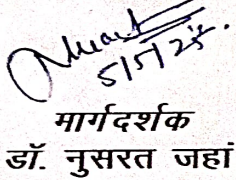 5/5/25
मार्गदर्शक
डॉ. नुसरत जहां